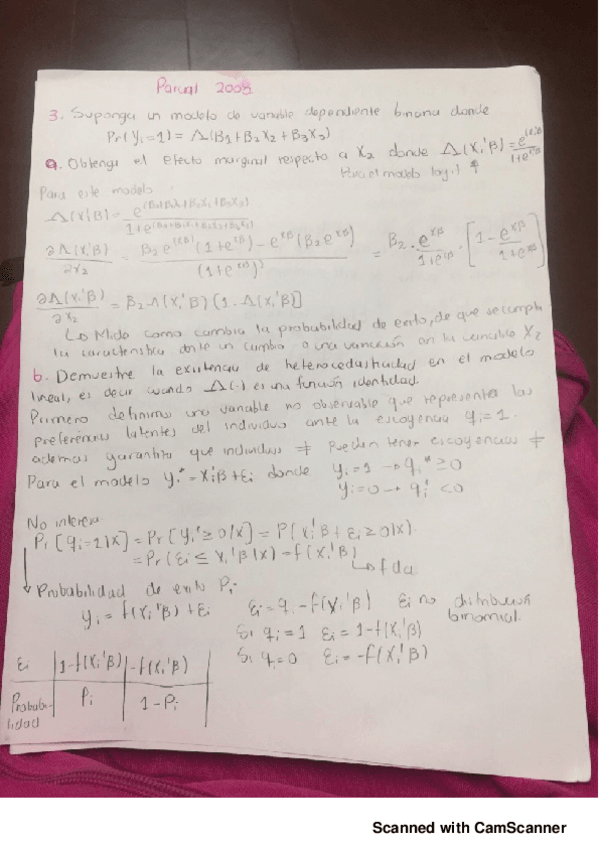 Parcial 2008
3. Suponga un modelo de variable dependiente binaria donde
Pr(Yi=1) = Λ(B1+B2X2+B3X3)
a. Obtenga el efecto marginal respecto a X2 donde Λ(Xi'β) = e^(xβ)/1+e^(xβ)
Para el modelo logit
Para este modelo:
∂Λ(Xi'β)/∂X2 = β2 e^(xβ)(1+e^(xβ)) - e^(xβ)(β2 e^(xβ))/(1+e^(xβ))² = β2 · e^xβ/1+e^xβ · [1 - e^xβ/1+e^xβ]
∂Λ(Xi'β)/∂X2 = β2 Λ(Xi'β) (1-Λ(Xi'β)]
↳ Mide como cambia la probabilidad de exito, de que se cumpla
la caracteristica ante un cambio o una variación en la variable X2
b. Demuestre la existencia de heterocedasticidad en el modelo
lineal, es decir cuando Λ(·) es una función identidad.
Primero definimos una variable no observable que representa las
preferencias latentes del individuo ante la escogencia qi=1.
ademas garantiza que individuos ≠ Pueden tener escogencias ≠
Para el modelo yi* = Xi'β+εi donde yi=1 → qi* ≥0
yi=0 → qi* <0
No interesa
Pr[qi=1|x] = Pr[yi*≥0|x] = P[xi'β+εi≥0|x).
= Pr(εi ≤ Xi'β|x) = f(Xi'β)
↳ fda
Probabilidad de exito Pi
yi = f(Xi'β)+εi εi = qi - f(Xi'β) εi no distribución
binomial.
Si qi=1 εi = 1-f(Xi'β)
Si qi=0 εi = -f(Xi'β)
εi | 1-f(Xi'β) | -f(Xi'β)
Probabilidad | Pi | 1-Pi
Scanned with CamScanner